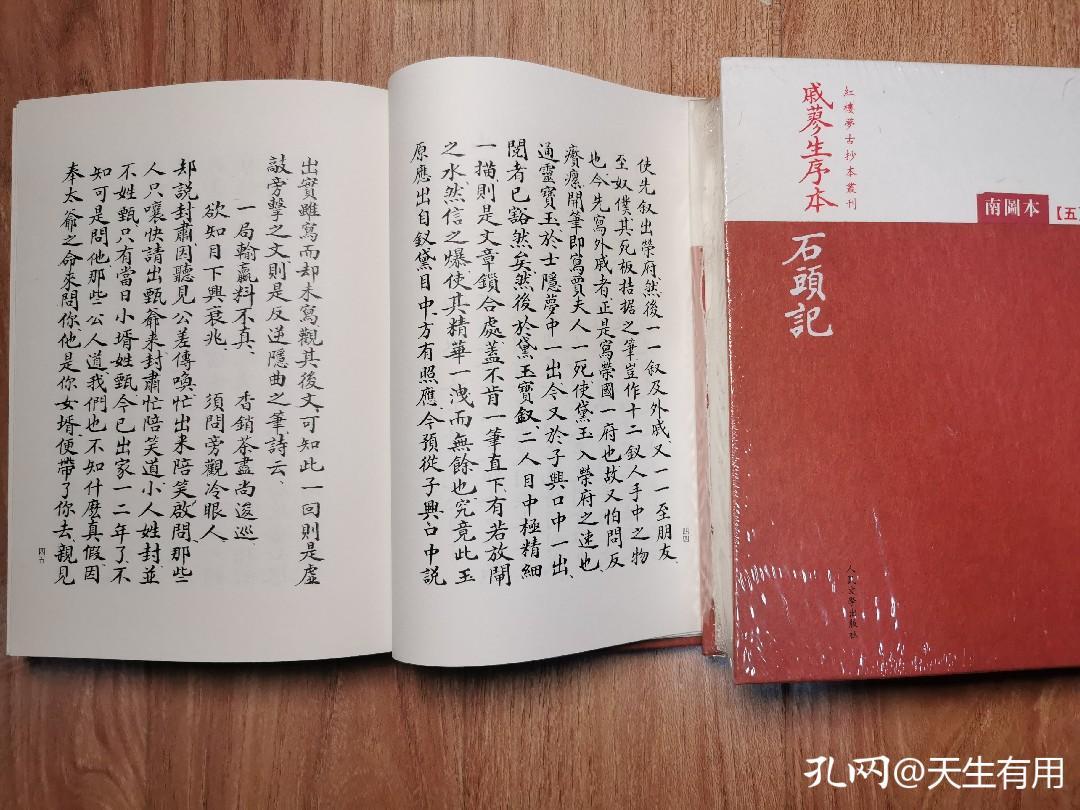 使先叙出榮府然後一一叙及外戚又一一至朋友、
至奴僕其死板拮据之筆豈作十二釵人手中之物
也、今先寫外戚者正是寫榮國一府也故又怕問反
開筆即寫賈夫人一死使黛玉入榮府之速也、
通靈寶玉於士隱夢中一出今又於子興口中一出、
閱者已豁然矣然後於黛玉寶釵二人目中極精細
一描則是文章鎖合處蓋不肯一筆直下有若放閘
之水然信之爆使其精華一洩而無餘也究竟此玉
原應出自釵黛目中、方有照應、今預從子興口中說
四四
出實雖寫而却未寫觀其後文、可知此一回則是虛
敲旁擊之文則是反逆隱曲之筆、詩云、
一局輸贏料不真、 香銷茶盡尚逡巡
欲知目下興衰兆、 須問旁觀冷眼人
却說封肅因聽見公差傳喚忙出來陪笑啟問那些
人只嚷快請出甄爺來封肅忙陪笑道小人姓封並
不姓甄只有當日小壻姓甄今已出家一二年了、不
知可是問他那些公人道、我們也不知什麽真假、因
奉太爺之命來問你他是你女壻便帶了你去、親見
四五
紅樓夢古抄本叢刊
戚蓼生序本
南圖本
【五
石頭記
人民文學出版社
孔网@天生有用